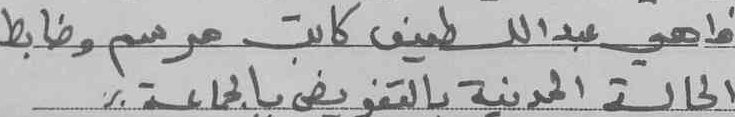 فراهي عبد اللطيف كاتب مرسم وضابط
الحالة المدنية بالتفويض بالجماعة ./.